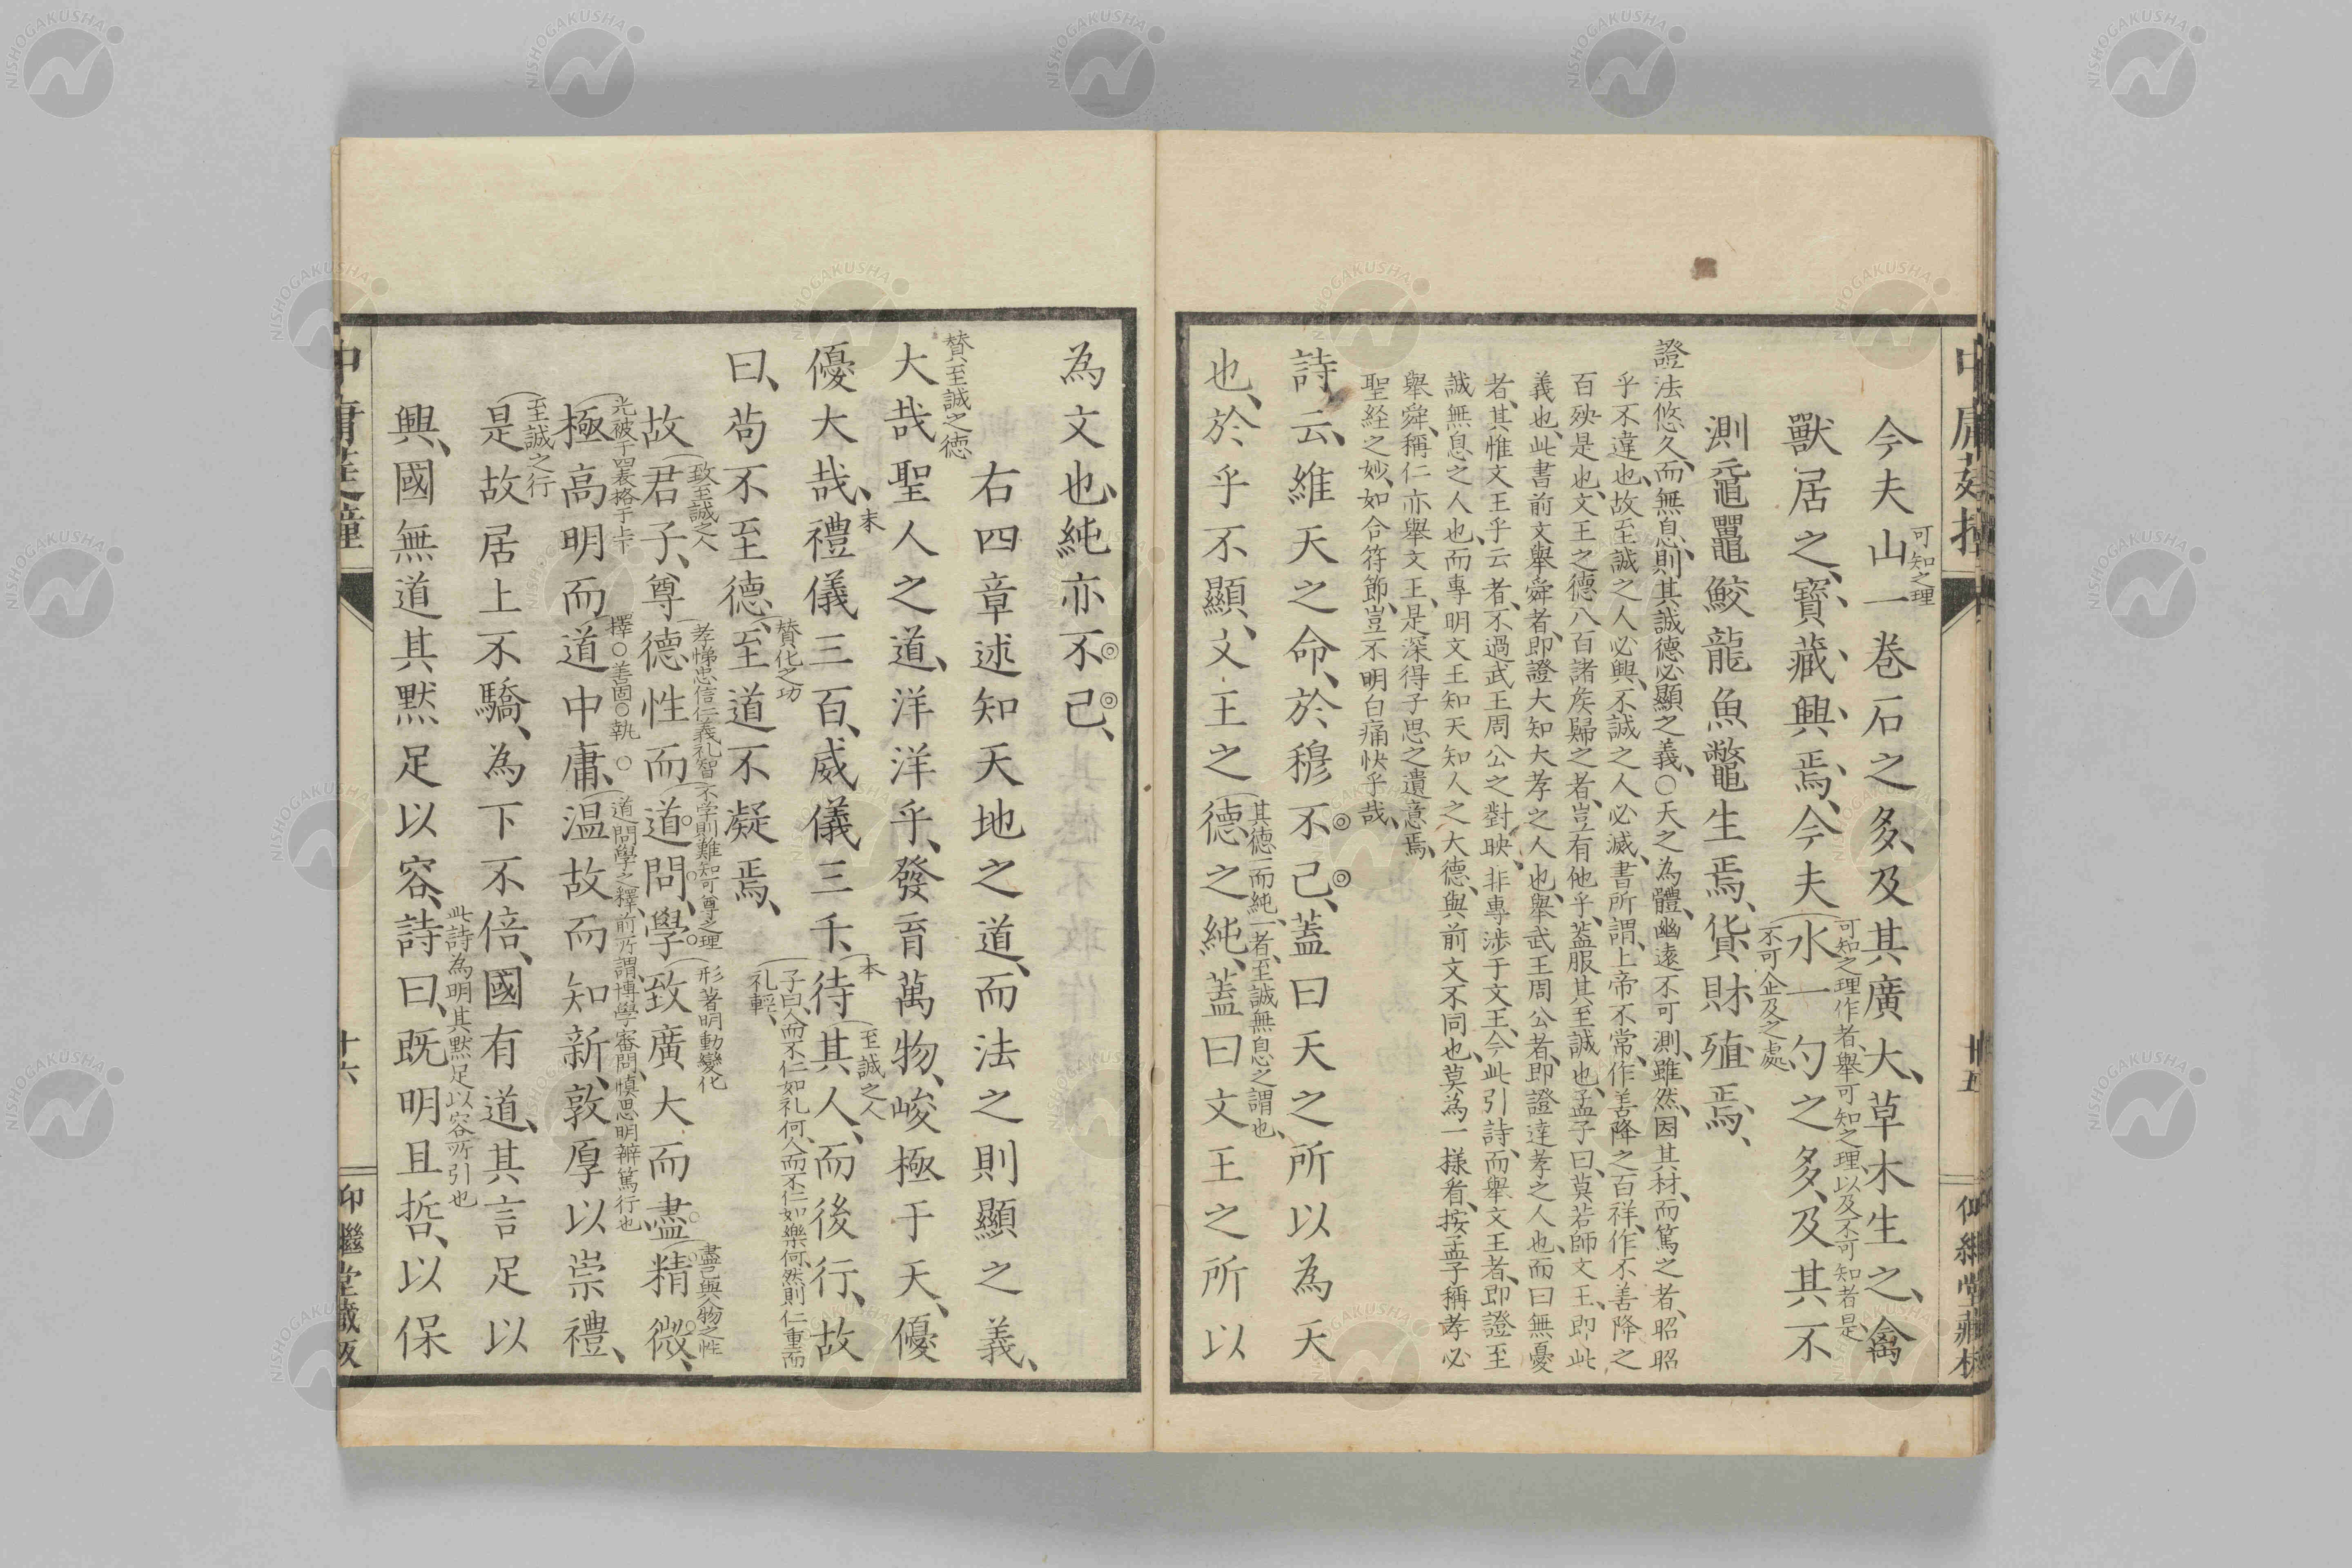 今夫山一巻石之多、及其廣大、草木生之、禽
可知之理
獸居之、寶藏興焉、今夫水一勺之多、及其不
可知之理作者、舉可知之理、以及不可知者是、
不可企及之處
測黿鼉鮫龍魚鼈生焉、貨財殖焉、
證法悠久、而無息、則其誠德必顯之義、○天之為體、幽遠不可測、雖然、因其材、而篤之者、昭昭
乎不違也、故至誠之人必興、不誠之人必滅、書所謂、上帝不常、作善降之百祥、作不善降之
百殃是也、文王之德、八百諸矦歸之者、豈有他乎、蓋服其至誠也、孟子曰、莫若師文王、即此
義也、此書前文舉舜者、即證大知大孝之人也、舉武王周公者、即證達孝之人也、而曰無憂
者、其惟文王乎云者、不過武王周公之對映、非專渉于文王、今此引詩、而舉文王者、即證至
誠無息之人也、而專明文王知天知人之大德、與前文不同也、莫為一樣看、按孟子稱孝必
舉舜、稱仁亦舉文王、是深得子思之遺意焉、
聖経之妙、如合符節、豈不明白痛快乎哉、
詩云、維天之命、於穆不已、蓋曰天之所以為天
也、於乎不顯、文王之德之純、蓋曰文王之所以
其德一而純一者、至誠無息之謂也、
中庸
廿五
為文也、純亦不已、
右四章述知天地之道、而法之則顯之義、
賛至誠之德
大哉聖人之道、洋洋乎、發育萬物、峻極于天、優
優大哉、禮儀三百、威儀三千、待其人、而後行、故
末
本
至誠之人
曰、苟不至德、至道不凝焉、
賛化之功
子曰、人而不仁如礼何、人而不仁如樂何、然則仁重而
礼輕、
故君子、尊德性而道問學、致廣大而盡精微、
致至誠之人
孝悌忠信仁義礼智
不学則難知可尊之理
形著明動變化
盡己與人物之性
極高明而道中庸、温故而知新、敦厚以崇禮、
光被于四表格于上下
擇○善固○執○
道問學之釋、前所謂博學審問、慎思明辨篤行也、
是故居上不驕、為下不倍、國有道、其言足以
至誠之行
興、國無道其黙足以容、詩曰、既明且哲、以保
此詩為明其黙足以容所引也
十六
仰繼堂藏板